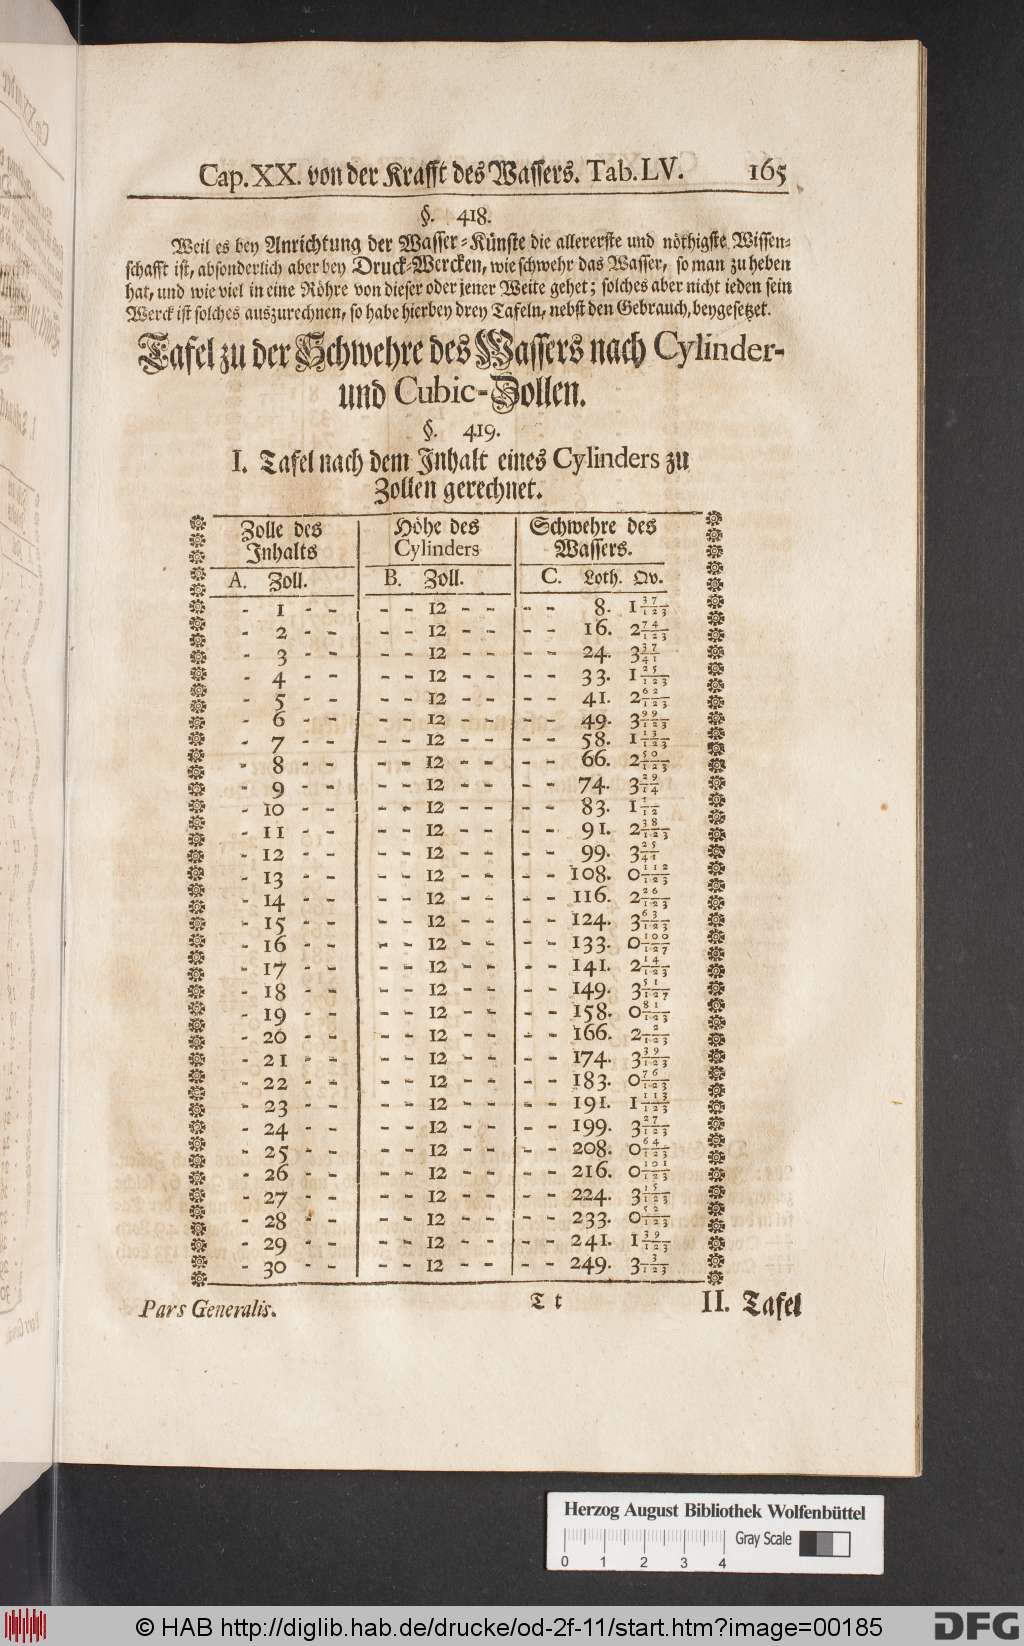 Cap. XX. von der Krafft des Wassers. Tab. LV. 165
§. 418.
Weil es bey Anrichtung der Wasser-Künste die allererste und nöthigste Wissen-
schafft ist, absonderlich aber bey Druck-Wercken, wie schwehr das Wasser, so man zu heben
hat, und wie viel in eine Röhre von dieser oder jener Weite gehet; solches aber nicht ieden sein
Werck ist solches auszurechnen, so habe hierbey drey Tafeln, nebst den Gebrauch, beygesetzet.
Tafel zu der Schwehre des Wassers nach Cylinder-
und Cubic-Zollen.
§. 419.
I. Tafel nach dem Inhalt eines Cylinders zu
Zollen gerechnet.
Zolle des Höhe des Schwehre des
Inhalts Cylinders Wassers.
A. Zoll. B. Zoll. C. Loth. Qv.
- 1 - - - - 12 - - - - 8. 1 37/123
- 2 - - - - 12 - - - - 16. 2 74/123
- 3 - - - - 12 - - - - 24. 3 37/41
- 4 - - - - 12 - - - - 33. 1 25/123
- 5 - - - - 12 - - - - 41. 2 62/123
- 6 - - - - 12 - - - - 49. 3 99/123
- 7 - - - - 12 - - - - 58. 1 13/123
- 8 - - - - 12 - - - - 66. 2 50/123
- 9 - - - - 12 - - - - 74. 3 29/14
- 10 - - - - 12 - - - - 83. 1 1/12
- 11 - - - - 12 - - - - 91. 2 38/123
- 12 - - - - 12 - - - - 99. 3 25/41
- 13 - - - - 12 - - - - 108. 0 112/123
- 14 - - - - 12 - - - - 116. 2 26/123
- 15 - - - - 12 - - - - 124. 3 63/123
- 16 - - - - 12 - - - - 133. 0 100/127
- 17 - - - - 12 - - - - 141. 2 14/123
- 18 - - - - 12 - - - - 149. 3 51/127
- 19 - - - - 12 - - - - 158. 0 81/123
- 20 - - - - 12 - - - - 166. 2 2/123
- 21 - - - - 12 - - - - 174. 3 39/123
- 22 - - - - 12 - - - - 183. 0 76/123
- 23 - - - - 12 - - - - 191. 1 113/123
- 24 - - - - 12 - - - - 199. 3 27/123
- 25 - - - - 12 - - - - 208. 0 64/123
- 26 - - - - 12 - - - - 216. 0 101/123
- 27 - - - - 12 - - - - 224. 3 15/123
- 28 - - - - 12 - - - - 233. 0 52/123
- 29 - - - - 12 - - - - 241. 1 39/123
- 30 - - - - 12 - - - - 249. 3 3/123
Pars Generalis. T t II. Tafel
Herzog August Bibliothek Wolfenbüttel
Gray Scale
0 1 2 3 4
© HAB http://diglib.hab.de/drucke/od-2f-11/start.htm?image=00185
DFG